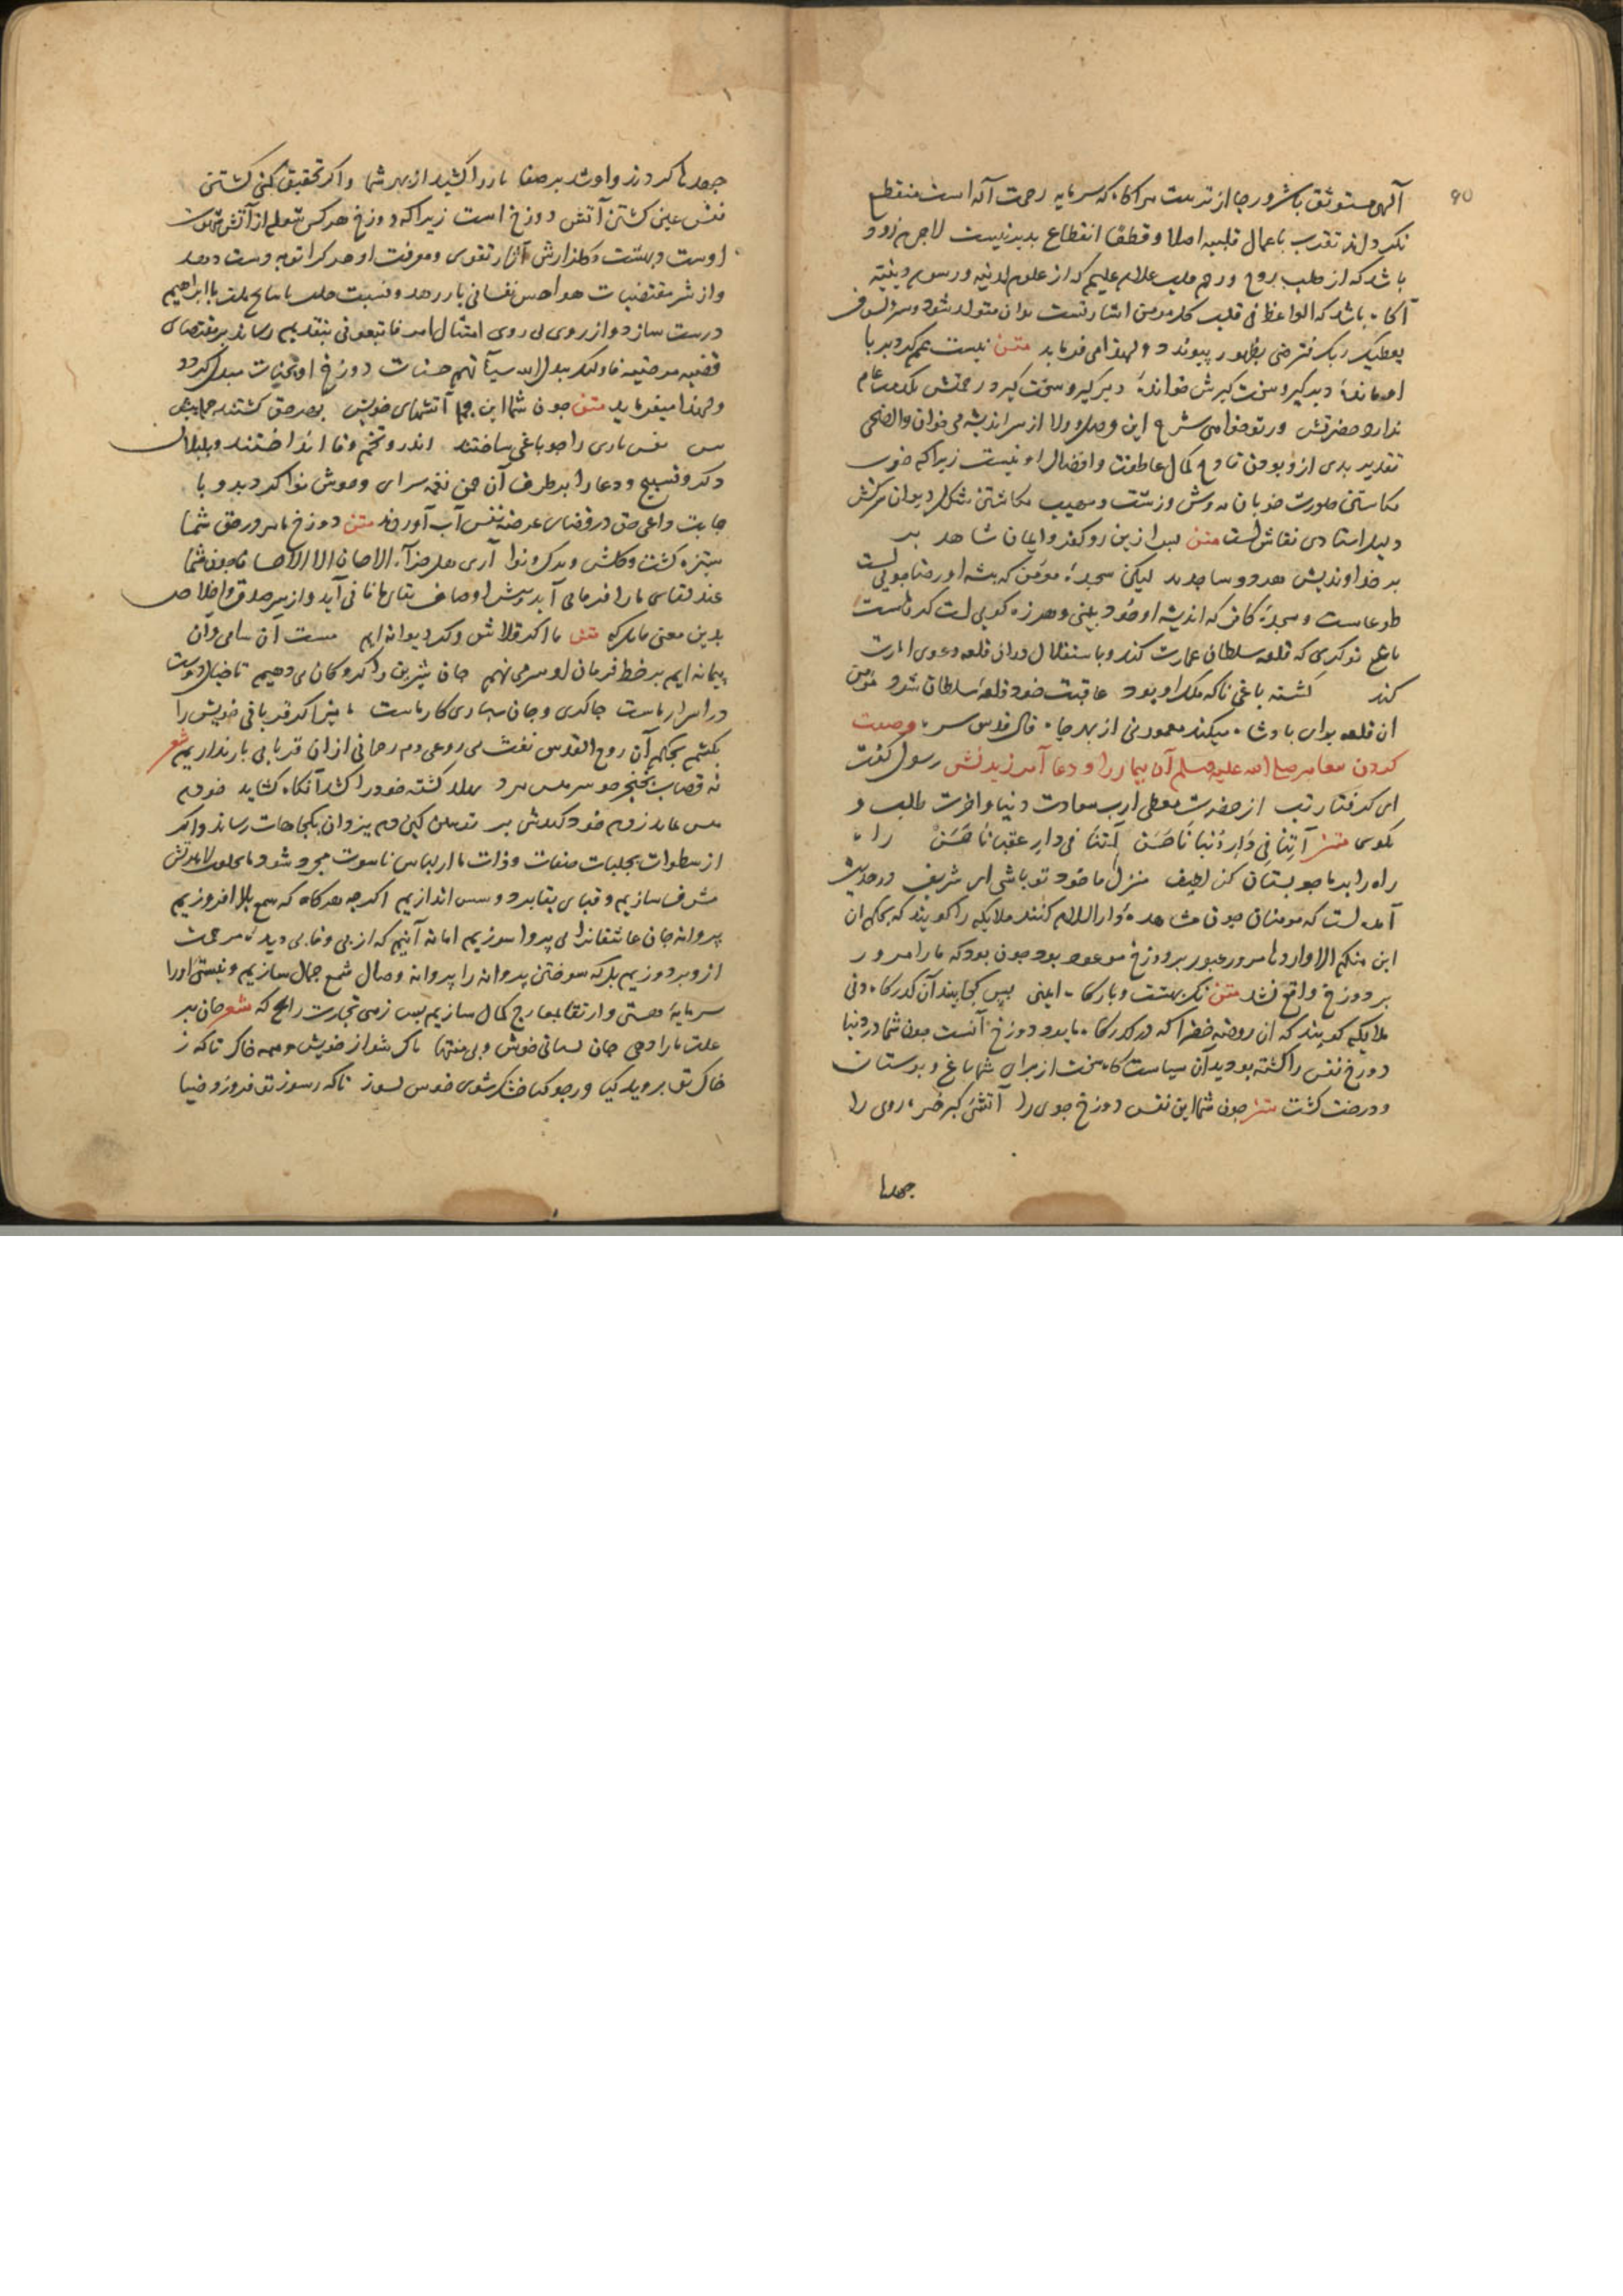 ۹۵
آلهی مستوثق باشد و رجا از تربیت سر آنکاه که سرمایه رحمت آله است منقطع
نکرداند تقرب باعمال قلبیه اصلا و قطعا انقطاع پذیر نیست لاجرم زود
باشد که از طلب بروح و رحم علام علیم که از علوم لدنیه و رسوم دینیه
آکاه باشد که الواعظ فی قلب کل مومن اشارتست بدان متولد شود و سر لسوف
یعطیک ربک فترضی بظهور پیوندد و لهذا می فرماید متن نیست عمم کر دیر با
او مانده دیرگیر و سخت کیرش خوانده دیر کیر و سخت کیرد رحمتش یکدمت غایب
ندارد حضرتش ور تو خواهی شرح این وصل و ولا از سر اندیشه می خوان والضحی
تقدیر بدی ازو بودن قادح کمال عاطفت و افضال او نیست زیرا که خوب
نکاشتن صورت خوبان مهوش و زشت و مهیب نکاشتن شکل دیوان سرکش
دلیل استادی نقاش است متن پس ازین رو کفر و ایمان شاهد ند
بر خداوندیش هر دو ساجدند لیکن سجده مومن که پیشه او رضاجویی است
طوعا ست و سجده کافر که اندیشه او خود بینی و هرزه کویی است کرها ست
باغی نوکری که قلعه سلطان عمارت کند و باستقلال دران قلعه دعوی امارت
کند گشته باغی تا که ملک او بود عاقبت خود قلعه سلطان شود مومن
آن قلعه برای پادشاه میکند معمور نی از بهر جاه قال قدس سره وصیت
کردن پیغامبر صلی الله علیه وسلم آن بیمار را و دعا آمرزیدنش رسول گفت
ای گرفتار تب از حضرت معطی ارب سعادت دنیا و آخرت طلب و
بکوی متن آتنا فی دار دنیانا حسن آتنا فی دار عقبانا حسن راه
راه را بر ما چو بستان کن لطیف منزل ما خود تو باشی ای شریف در حدیث
آمده است که مومنان چون مشاهده دار السلام کنند ملایکه را کویند که بحکم ان
این منکم الا واردها مرور عبور بر دوزخ موعود بود چون بود که ما را مرور
بر دوزخ واقع نشد متن نک بهشت و بارکاه ایمنی پس کجا بد آن کذرکاه دنی
ملایکه کویند که آن روضه خضرا که در کذرکاه ما بود دوزخ آنست چون شما در دنیا
دوزخ نفس را کشته بودید آن سیاست کاه سخت از برای شما باغ و بوستان
و درخت کشت متن چون شما این نفس دوزخ خوی را آتشی کبر فتنه جوی را
جهدها
جهدها کردند و او شد پر صفا نار را کشید از بهر شما و اگر تحقیق کنی کشتن
نفس عین کشتن آتش دوزخ است زیرا که دوزخ هر کس شعله از آتش شهوت
اوست و بهشت و کلذارش آثار تقوی و معرفت او هر کرا توبه دست دهد
و از شر مقتضیات هواجس نفسانی باز رهد و نسبت ملت با ابراهیم
درست سازد و از روی بی روی امتثال امر فاتبعونی بتقدیم رساند بر مقتضای
قضیه مرضیه فاولئک یبدل الله سیآتهم حسنات دوزخ او بجنات مبدل کردد
و لهذا میفرماید متن چون شما این جمله آتشهای خویش بهر حق کشتید جمله پیش
نفس ناری را چو باغی ساختید اندرو تخم وفا انداختید و بلبلان
ذکر و تسبیح و دعا را بر طرف آن چمن نغمه سرای و خوش نوا کردید و با
جابت داعی حق در فضای عرصه نفس آب آوردید متن دوزخ ما در حق شما
سبزه کشت و کلشن و برک و نوا آری هل جزآء الاحسان الا الاحسان
عند لقای ما را فرمایی آید و پیش اوصاف بقای ما فانی آید و از سر صدق و اخلاص
بدین معنی متن ما اگر قلاش و گر دیوانه ایم مست آن ساقی و آن
پیمانه ایم بر خط فرمان او سر می نهیم جان شیرین را گروکان می دهیم تا خیال دوست
در اسرار ماست چاکری و جان سپاری کار ماست ما نیز اگر قربانی خویش را
بکشیم بحکم آن روح القدس نفث فی روعی دم رحمانی ازان قربانی باز نداریم شعر
نه قصاب بخنجر چو سر میش برد نهلد کشته خود را کشد آنکاه کشاند چو دم
میش نماند ز دم خود کندش پر تو ببین کین دم یزدان بکجاهات رساند و اگر
از سطوات تجلیات صفات و ذات ما از لباس ناسوت مجرد شود ما بخلعت لاهوتش
مشرف سازیم و قبای بقا بر دوشش اندازیم اگر چه هر کاه که شمع بلا افروزیم
پروانه جان عاشقانرا بی پروا سوزیم اما نه آنیم که از بی وفایی دیده مرحمت
ازو بر دوزیم بل که سوختن پروانه را پروانه وصال شمع جمال سازیم و نیستی او را
سرمایه هستی و ارتقا بمعارج کمال سازیم پس زهی تجارت رابح که شعر جان بر
علت ما را دهی جان بستانی خوش و بی منتها خاک شو از خویش و همه خاک تا که ز
خاک تو بروید کیا ور چو کیا خشک شوی خوش بسوز تا که ز سوز تو فروزد ضیا